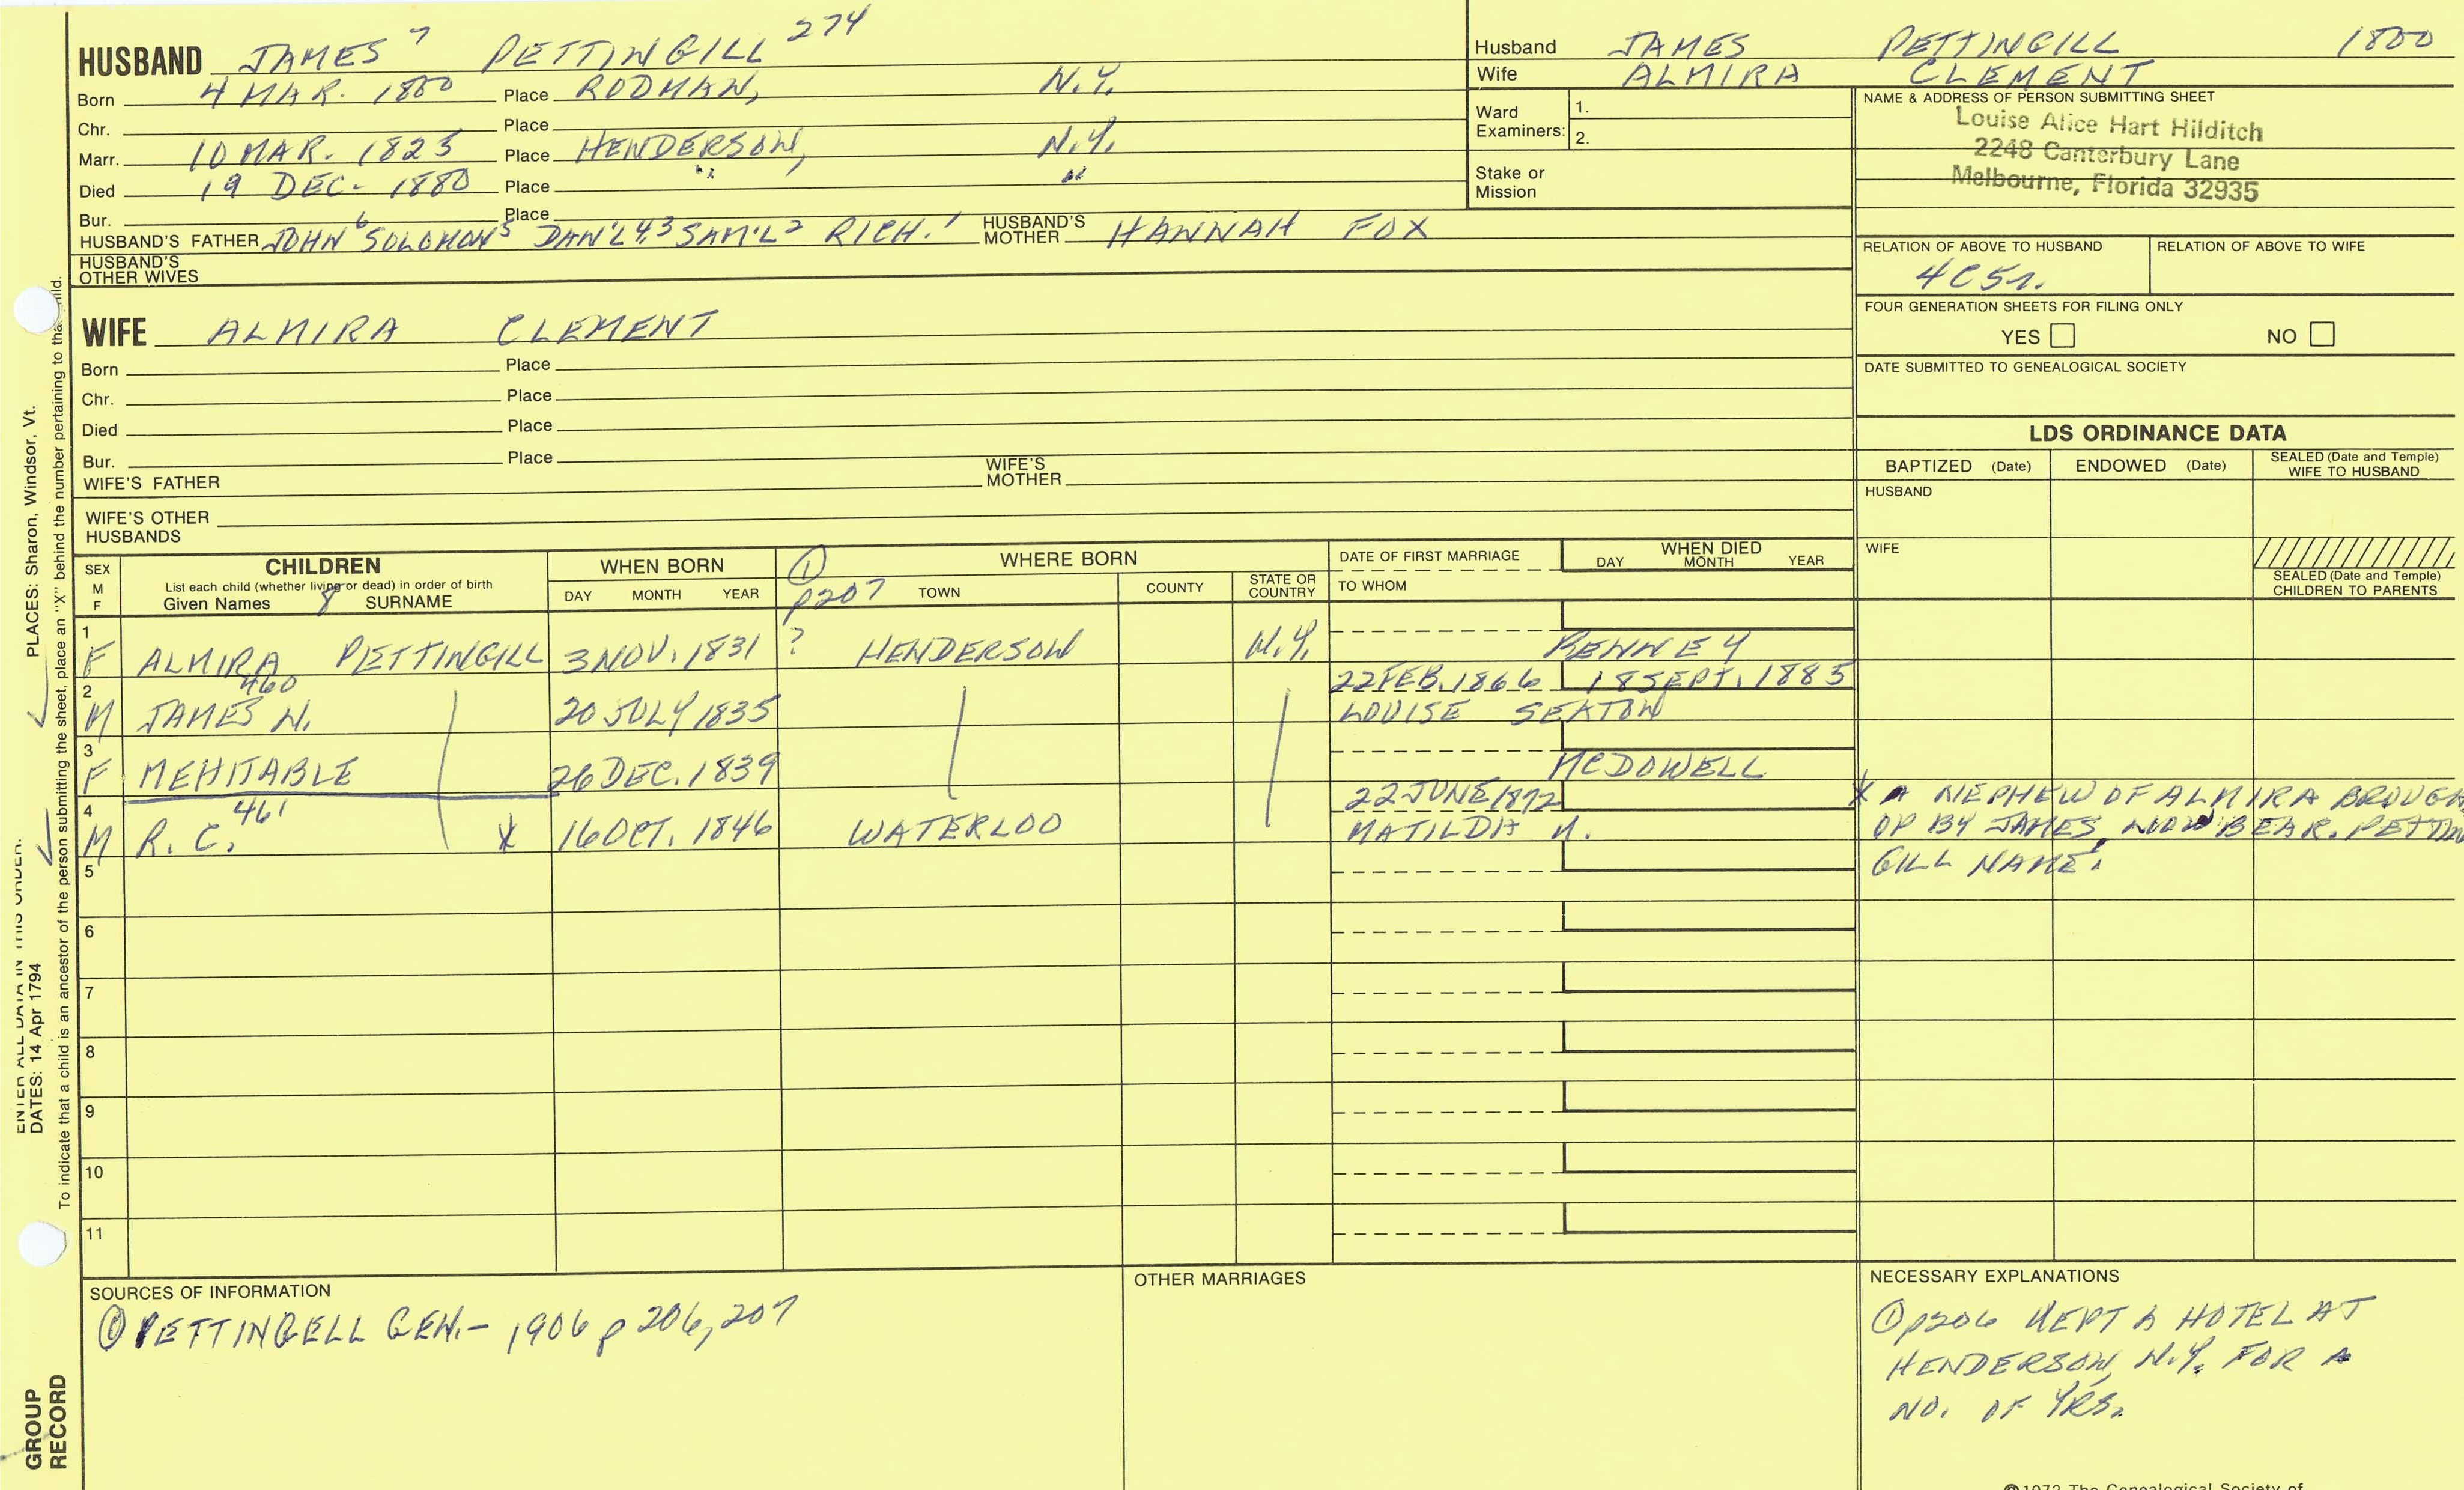 HUSBAND JAMES 7 PETTINGILL 274
Born 4 MAR. 1800 Place RODMAN, N.Y.
Chr. Place
Marr. 10 MAR. 1825 Place HENDERSON, N.Y.
Died 19 DEC. 1880 Place " "
Bur. Place
HUSBAND'S FATHER JOHN 6 SOLOMON 5 DAN'L 4,3 SAM'L 2 RICH. 1 HUSBAND'S MOTHER HANNAH FOX
HUSBAND'S OTHER WIVES
Husband JAMES PETTINGILL 1800
Wife ALMIRA CLEMENT
Ward Examiners: 1.
2.
Stake or Mission
NAME & ADDRESS OF PERSON SUBMITTING SHEET
Louise Alice Hart Hilditch
2248 Canterbury Lane
Melbourne, Florida 32935
RELATION OF ABOVE TO HUSBAND RELATION OF ABOVE TO WIFE
4C5r.
FOUR GENERATION SHEETS FOR FILING ONLY
YES NO
DATE SUBMITTED TO GENEALOGICAL SOCIETY
WIFE ALMIRA CLEMENT
Born Place
Chr. Place
Died Place
Bur. Place
WIFE'S FATHER WIFE'S MOTHER
WIFE'S OTHER HUSBANDS
LDS ORDINANCE DATA
BAPTIZED (Date) ENDOWED (Date) SEALED (Date and Temple) WIFE TO HUSBAND
HUSBAND
WIFE
SEALED (Date and Temple) CHILDREN TO PARENTS
SEX M F
CHILDREN
List each child (whether living or dead) in order of birth
Given Names 8 SURNAME
WHEN BORN
DAY MONTH YEAR
① p207
WHERE BORN
TOWN COUNTY STATE OR COUNTRY
DATE OF FIRST MARRIAGE
TO WHOM
WHEN DIED
DAY MONTH YEAR
1 F ALMIRA PETTINGILL 3 NOV. 1831 ? HENDERSON N.Y. KENNEY
460 22 FEB. 1866 18 SEPT. 1885
2 M JAMES W. 20 JULY 1835 LOUISE SEATON
3 F MEHITABLE 26 DEC. 1839 McDOWELL
461 22 JUNE 1872
4 M R. C. X 16 OCT. 1846 WATERLOO MATILDA M.
X A NEPHEW OF ALMIRA BROUGH
UP BY JAMES, NOW BEAR. PETTIN
GILL NAME.
5
6
7
8
9
10
11
SOURCES OF INFORMATION
① PETTINGELL GEN. - 1906 p 206, 207
OTHER MARRIAGES
NECESSARY EXPLANATIONS
① p206 KEPT A HOTEL AT
HENDERSON, N.Y. FOR A
NO. OF YRS.
ENTER ALL DATA IN THIS ORDER:
DATES: 14 Apr 1794 PLACES: Sharon, Windsor, Vt.
To indicate that a child is an ancestor of the person submitting the sheet, place an "X" behind the number pertaining to that child.
GROUP RECORD
©1972 The Genealogical Society of